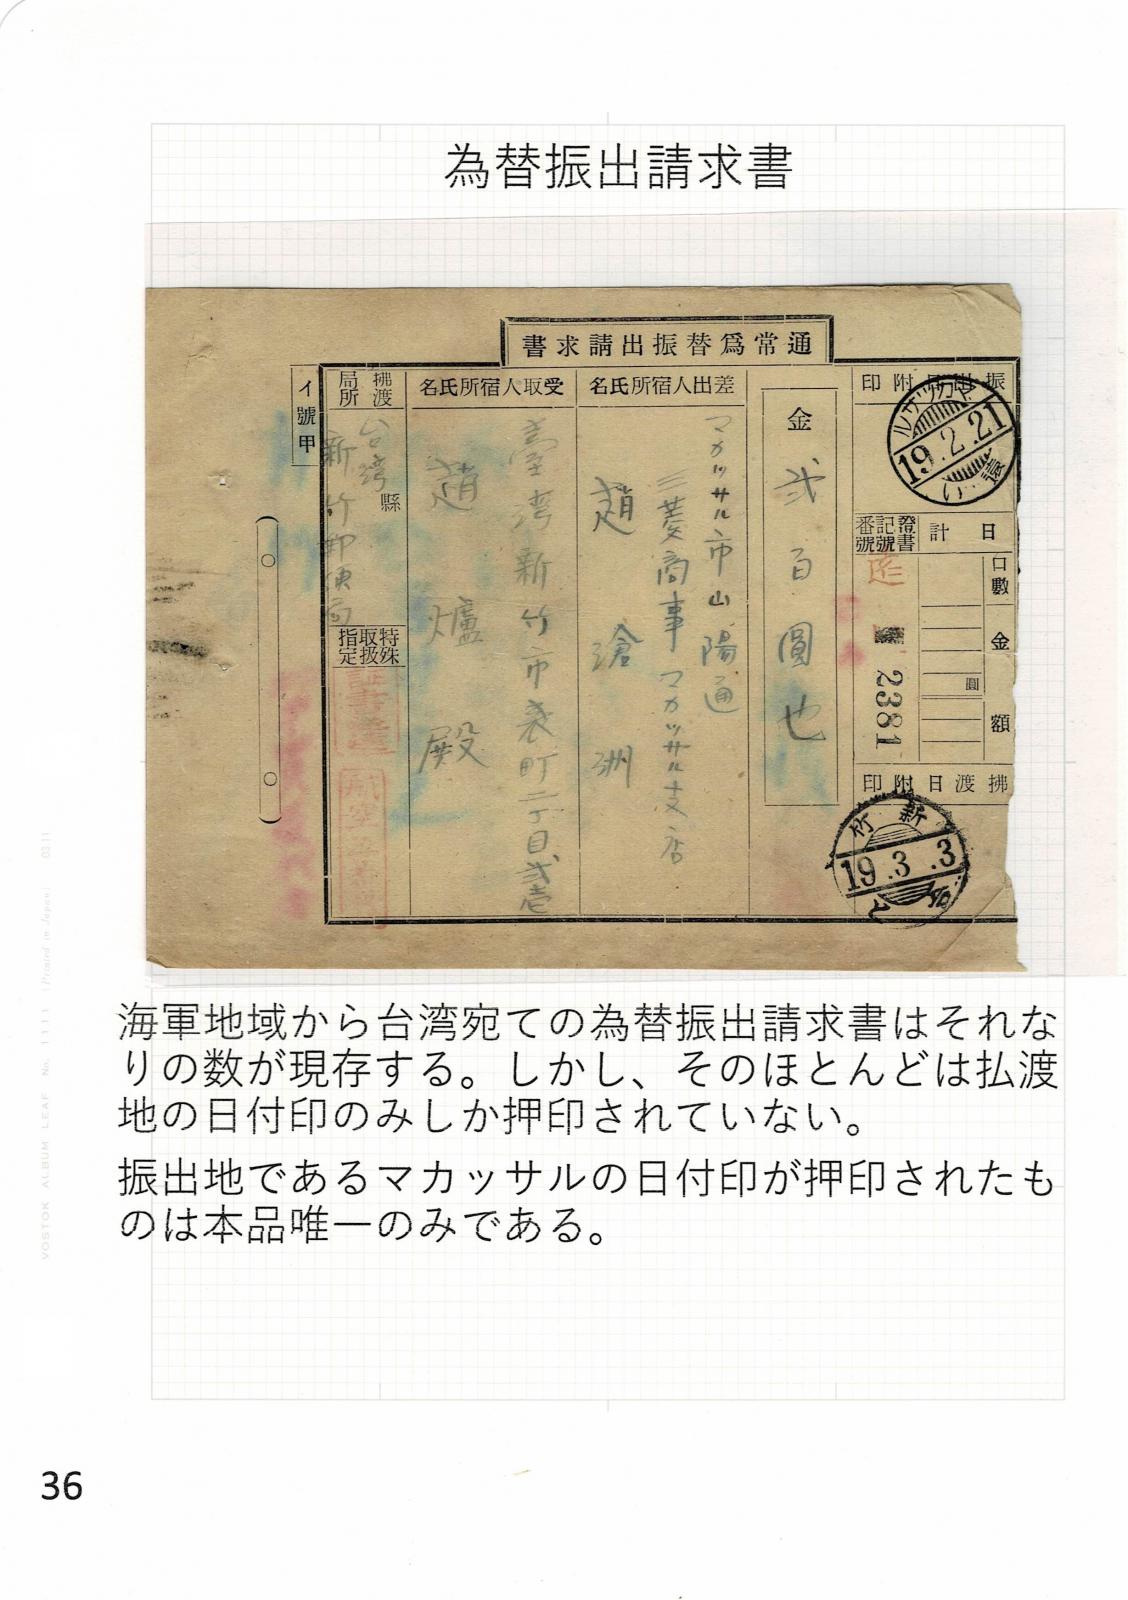 為替振出請求書
書求請出振替爲常通
振出日附印
マカッサル
19.2.21
い
證書記號番號
遞
2381
日計
口數
金額
圓
拂渡日附印
新竹
19.3.3
金
弐百圓也
差出人宿所氏名
マカッサル市山陽通
三菱商事マカッサル支店
趙滄洲
受取人宿所氏名
臺湾新竹市表町二丁目弐壱
趙爐殿
拂渡局所
台湾縣
新竹郵便局
特殊取扱指定
イ號甲
海軍地域から台湾宛ての為替振出請求書はそれな
りの数が現存する。しかし、そのほとんどは払渡
地の日付印のみしか押印されていない。
振出地であるマカッサルの日付印が押印されたも
のは本品唯一のみである。
VOSTOK ALBUM LEAF No. 1111 (Printed in Japan) 0311
36